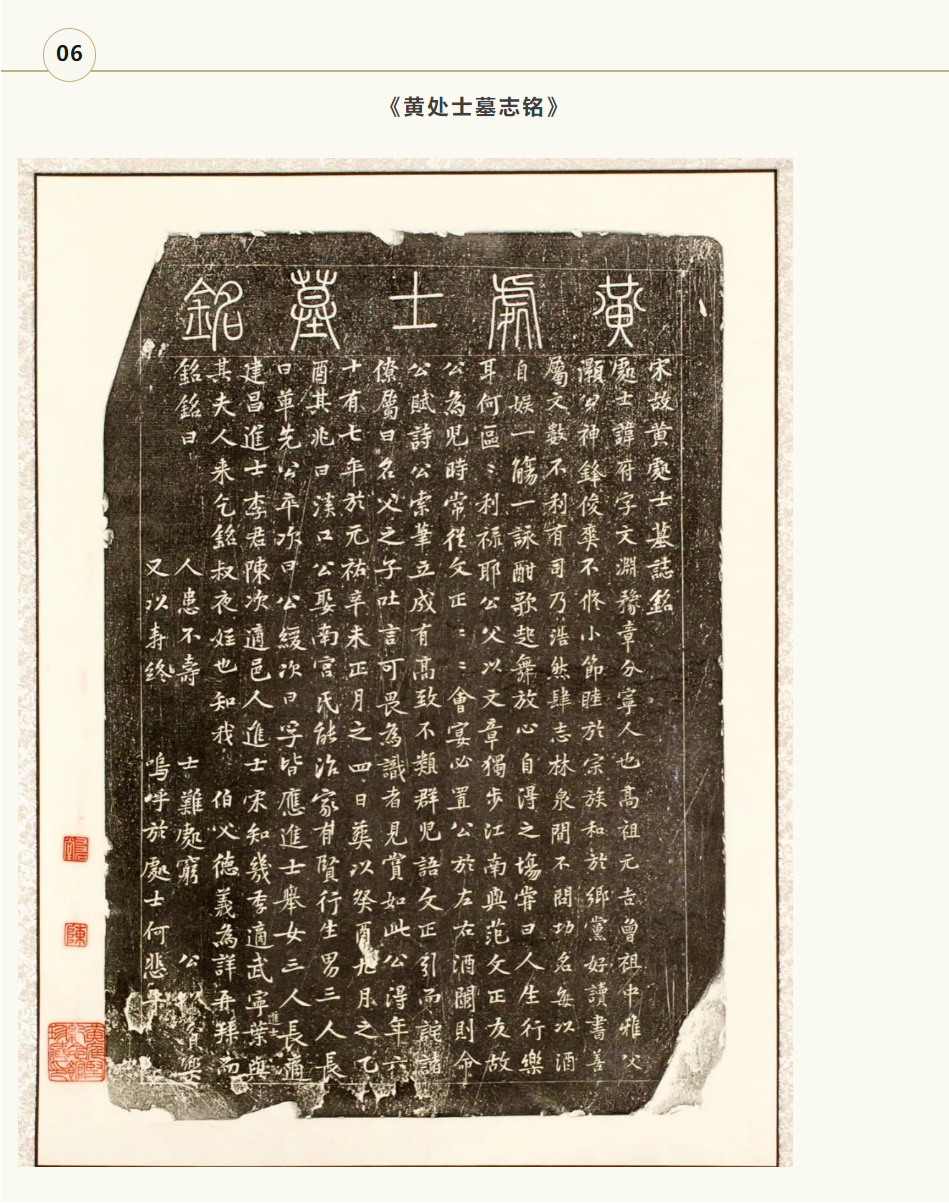 06
《黄处士墓志铭》
黄處士墓銘
宋故黄處士墓誌銘
處士諱府字文淵豫章分寧人也高祖元吉曾祖中雅父
灝公神鋒俊爽不修小節睦於宗族和於鄉黨好讀書善
屬文數不利有司乃浩然肆志林泉間不問功名每以酒
自娱一觴一詠酣歌起舞放心自得之場嘗曰人生行樂
耳何區〻利禄耶公父以文章獨步江南與范文正友故
公為児時常從文正〻〻會宴必置公於左右酒闌則命
公賦詩公索筆立成有高致不類群児語文正引而詫諸
僚屬曰名父之子吐言可畏為識者見賞如此公得年六
十有七年於元祐辛未正月之四日葬以癸酉九月之乙
酉其兆曰溪口公娶南宫氏能治家有賢行生男三人長
曰革先公卒次曰公緩次曰孚皆應進士舉女三人長適
進士
建昌進士李君陳次適邑人進士宋知幾季適武寧葉與
其夫人来乞銘叔夜姪也知我伯父徳義為詳再拜而
銘銘曰 人患不壽 士難處窮 公 貧樂
又以壽終 嗚呼於處士何悲乎